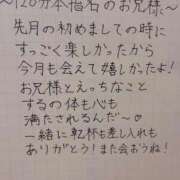 ～120分本指名のお兄様～
先月の初めましての時に
すっごく楽しかったから
今月も会えて嬉しかったよ!
お兄様とえっちなこと
するの体も心も
満たされるんだ～♡
一緒に乾杯も差し入れも
ありがとう!また会おうね!